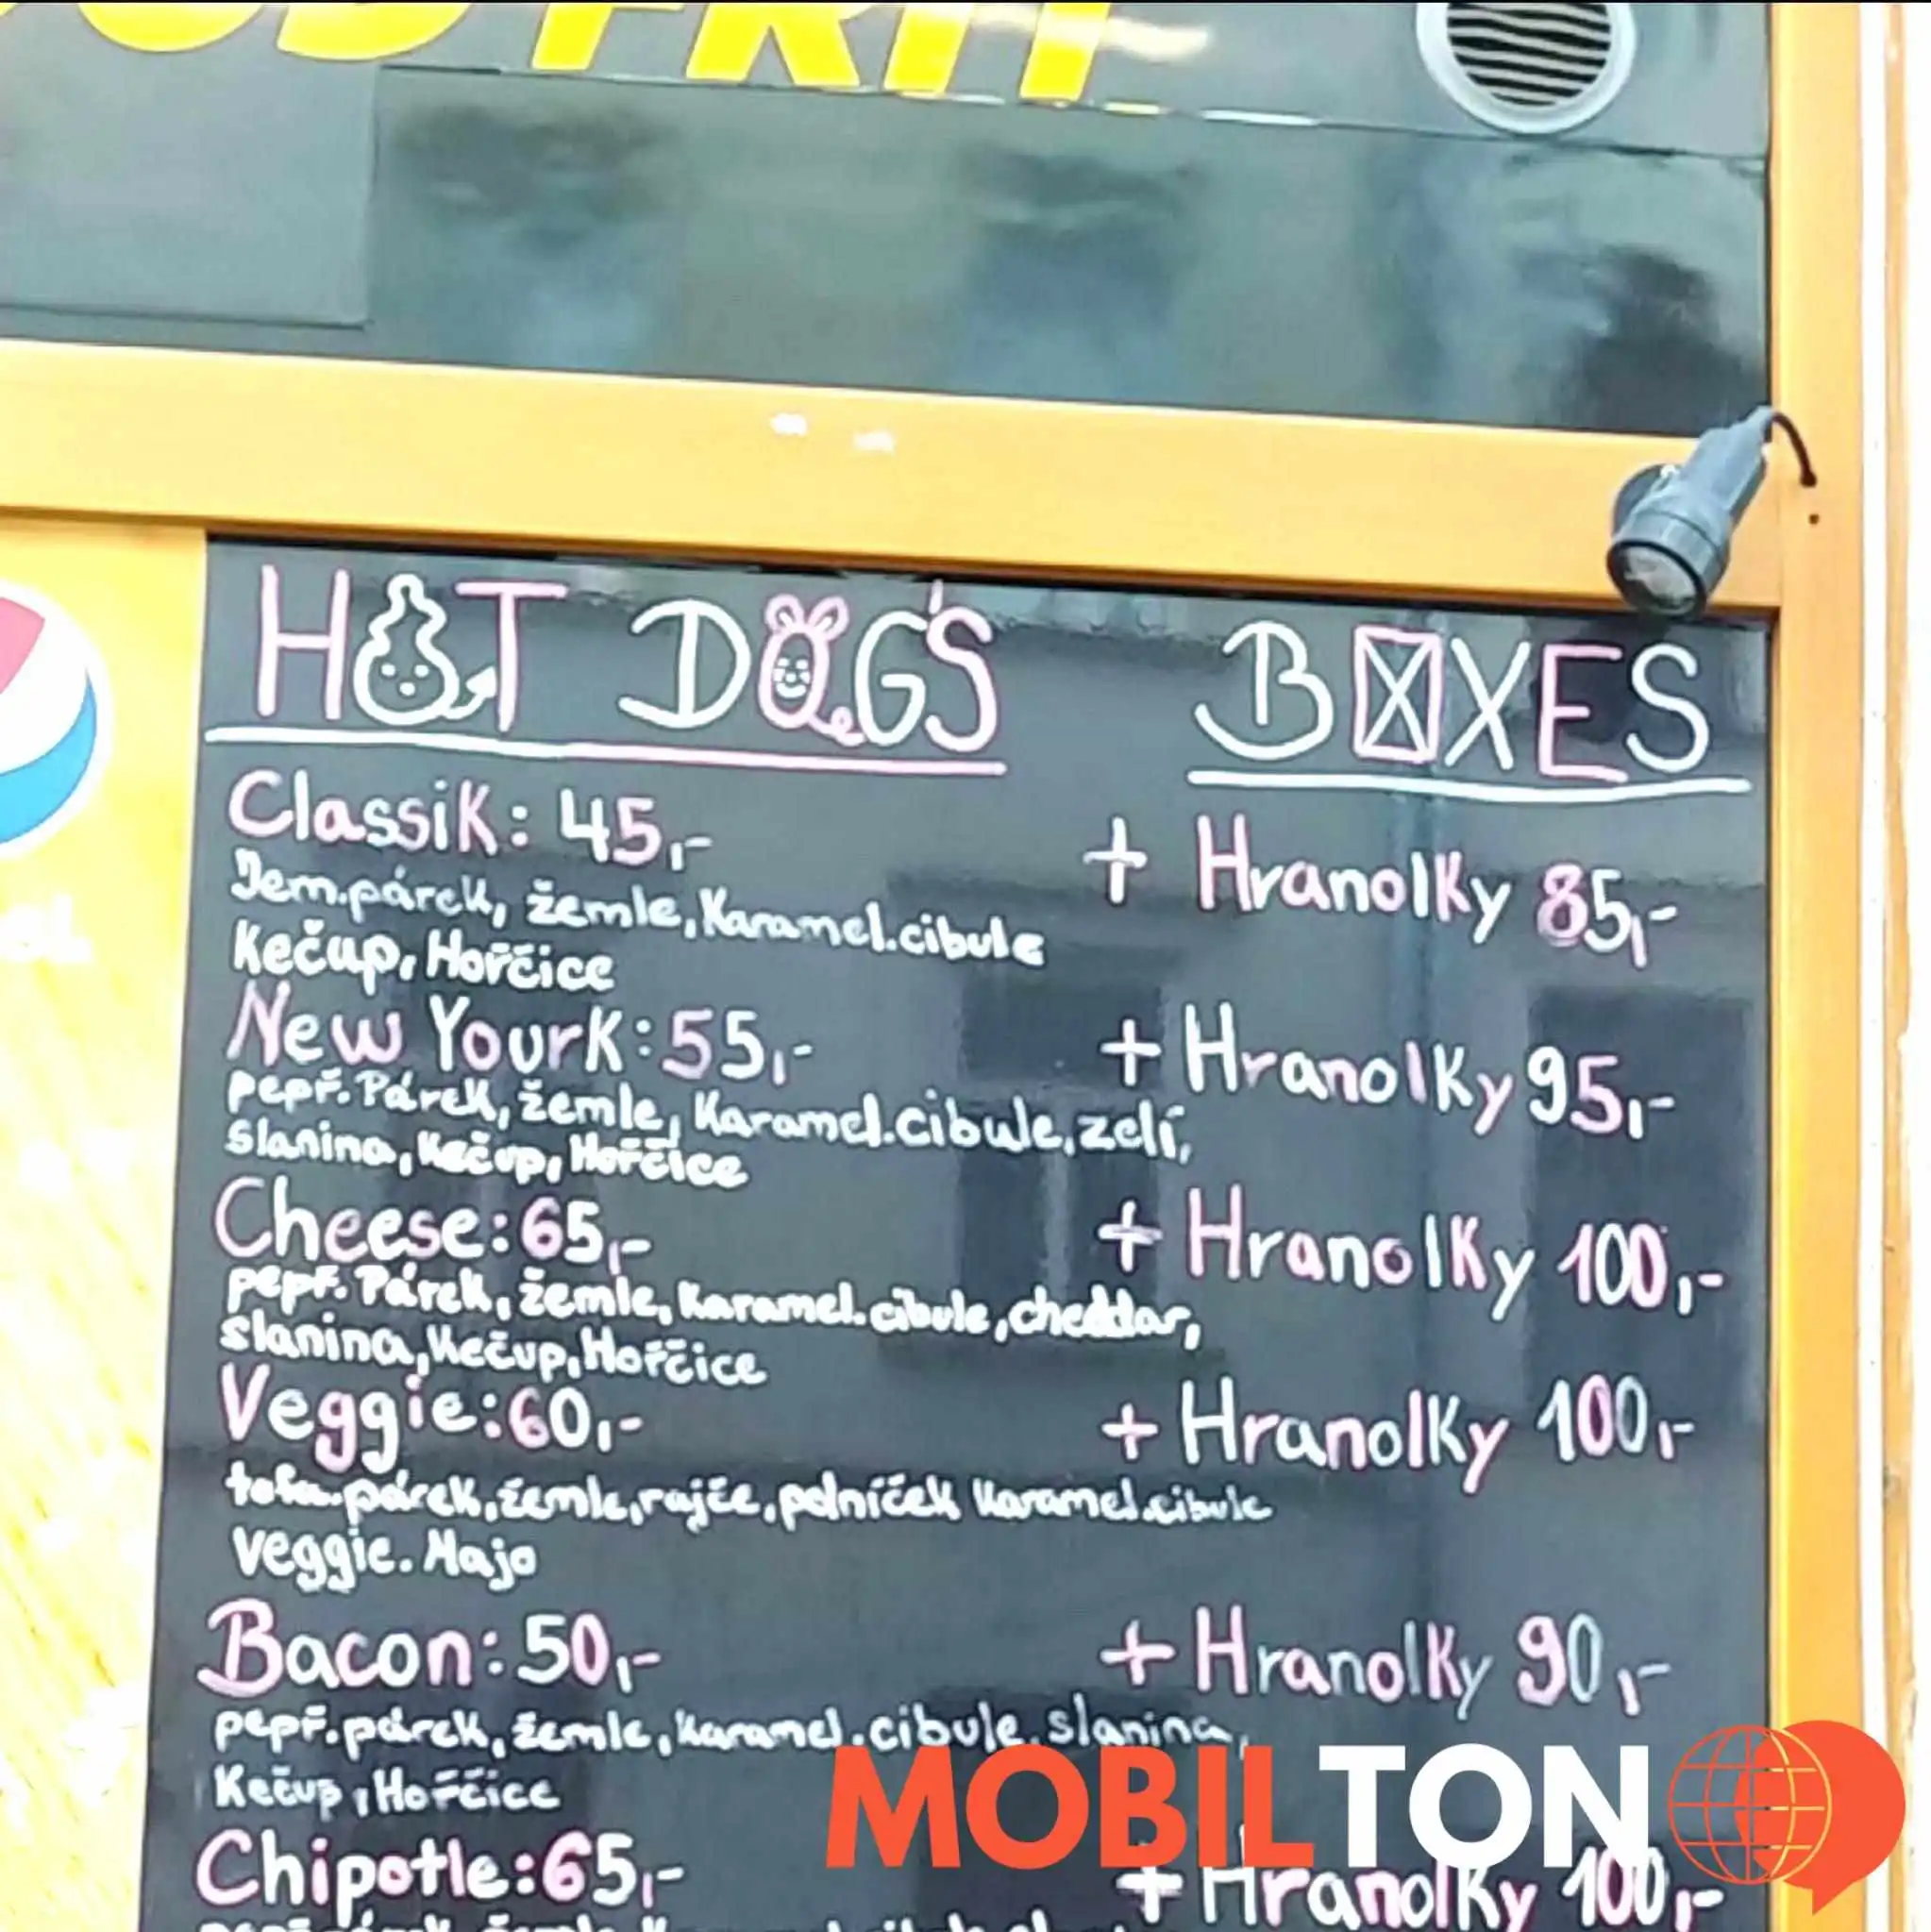 FRIT
HOT DOG'S BOXES
Classik: 45,- + Hranolky 85,-
Jem.párek, žemle, Karamel.cibule
Kečup, Hořčice
New Yourk: 55,- + Hranolky 95,-
pepř. Párek, žemle, Karamel.cibule, zelí,
slanina, Kečup, Hořčice
Cheese: 65,- + Hranolky 100,-
pepř. Párek, žemle, Karamel.cibule, cheddar,
slanina, Kečup, Hořčice
Veggie: 60,- + Hranolky 100,-
tofu.párek, žemle, rajče, polníček Karamel.cibule
Veggie. Majo
Bacon: 50,- + Hranolky 90,-
pepř.párek, žemle, Karamel.cibule, slanina,
Kečup, Hořčice
MOBILTON
Chipotle: 65,- + Hranolky 100,-